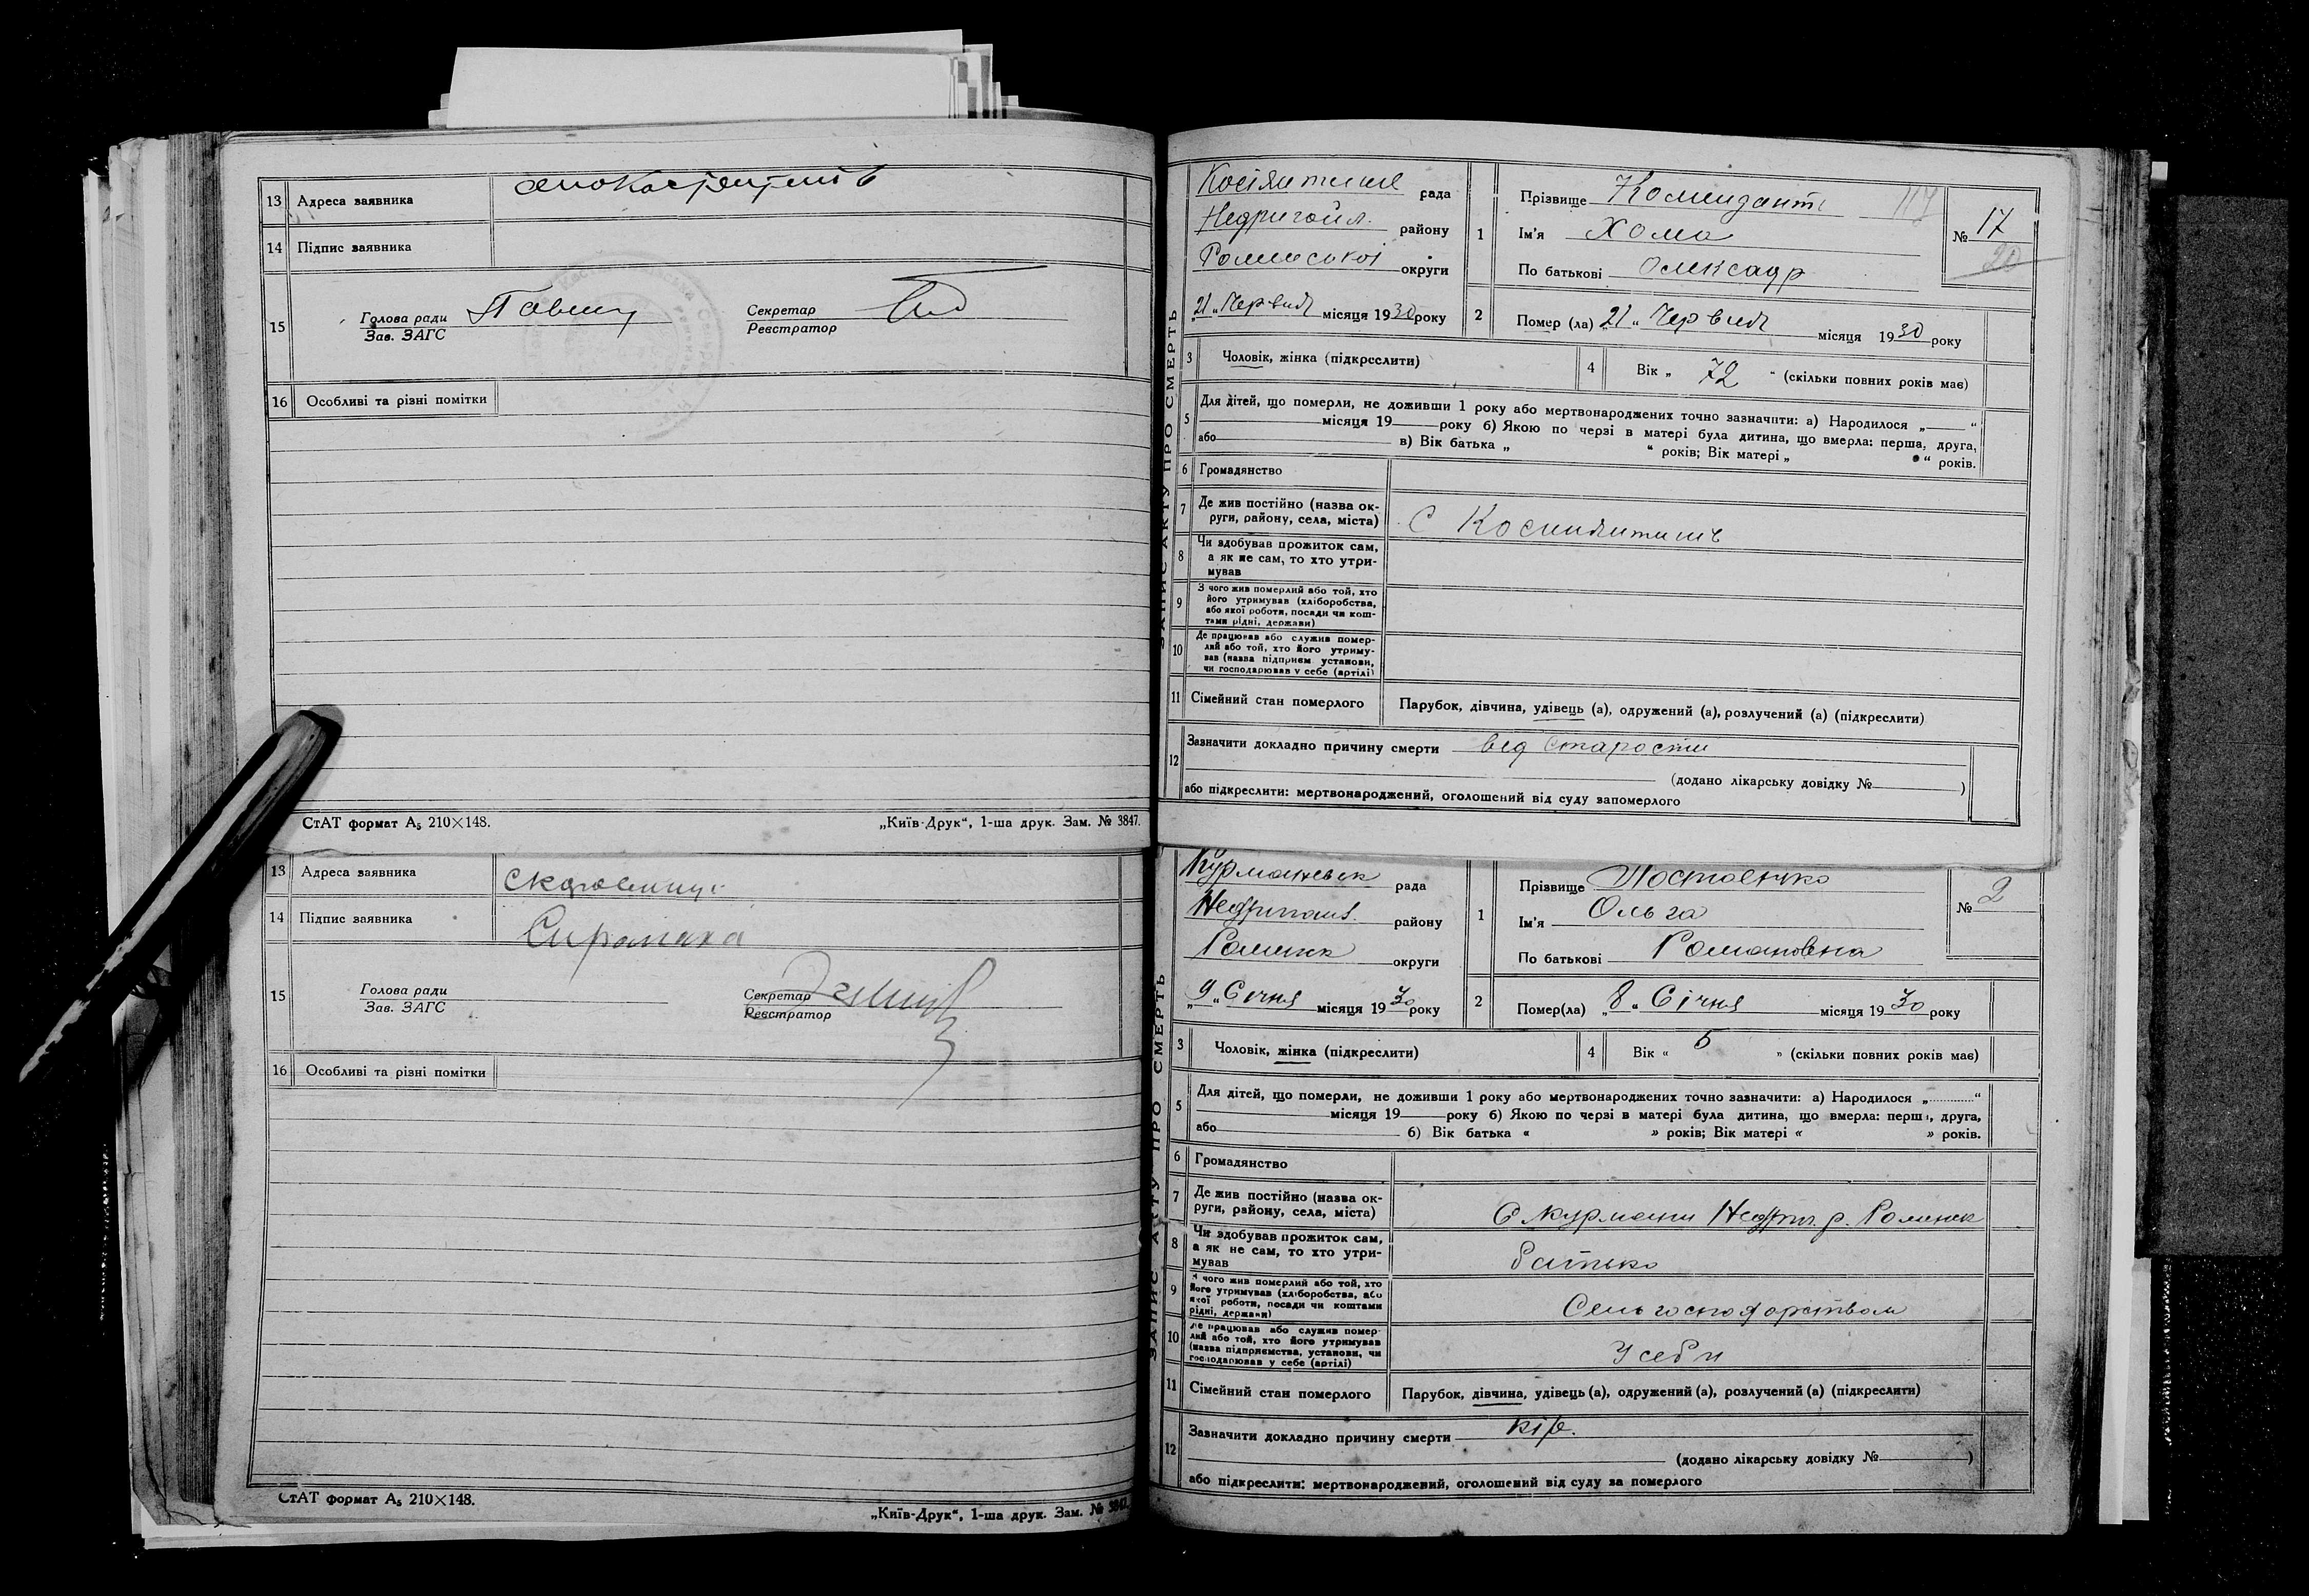 13 Адреса заявника
14 Підпис заявника
15 Голова ради
Зав. ЗАГС
Секретар
Реєстратор
16 Особливі та різні помітки
СтАТ формат А₅ 210×148. „Київ-Друк“, 1-ша друк. Зам. № 3847.
13 Адреса заявника
14 Підпис заявника
15 Голова ради
Зав. ЗАГС
Секретар
Реєстратор
16 Особливі та різні помітки
СтАТ формат А₅ 210×148.
„Київ-Друк“, 1-ша друк. Зам. № 3847.
ЗАПИС АКТУ ПРО СМЕРТЬ
рада
району
округи
„21“ місяця 1930 року
1 Прізвище Комендант 117
Ім'я Хома
По батькові Олександр
№ 17
20
2 Помер (ла) 21 „ місяця 1930 року
3 Чоловік, жінка (підкреслити)
4 Вік „ 72 “ (скільки повних років має)
5 Для дітей, що померли, не доживши 1 року або мертвонароджених точно зазначити: а) Народилося „ “
місяця 19 року б) Якою по черзі в матері була дитина, що вмерла: перша, друга,
або в) Вік батька „ “ років; Вік матері „ “ років.
6 Громадянство
7 Де жив постійно (назва ок-
руги, району, села, міста) с
8 Чи здобував прожиток сам,
а як не сам, то хто утри-
мував
9 З чого жив померлий або той, хто
його утримував (хліборобства,
або якої роботи, посади чи кош-
тами рідні, держави)
10 Де працював або служив помер-
лий або той, хто його утриму-
вав (назва підприєм. установи,
чи господарював у себе (артілі)
11 Сімейний стан померлого Парубок, дівчина, удівець (а), одружений (а), розлучений (а) (підкреслити)
12 Зазначити докладно причину смерти від старости
(додано лікарську довідку № )
або підкреслити: мертвонароджений, оголошений від суду запомерлого
ЗАПИС АКТУ ПРО СМЕРТЬ
рада
району
округи
„9“ Січня місяця 1930 року
1 Прізвище
Ім'я Ольга
По батькові Романовна
№ 2
2 Помер(ла) „8“ Січня місяця 1930 року
3 Чоловік, жінка (підкреслити)
4 Вік « 5 » (скільки повних років має)
5 Для дітей, що померли, не доживши 1 року або мертвонароджених точно зазначити: а) Народилося „ “
місяця 19 року б) Якою по черзі в матері була дитина, що вмерла: перш, друга,
або б) Вік батька « » років; Вік матері « » років.
6 Громадянство
7 Де жив постійно (назва ок-
руги, району, села, міста) с
8 Чи здобував прожиток сам,
а як не сам, то хто утри-
мував батько
9 З чого жив померлий або той, хто
його утримував (хліборобства, або
якої роботи, посади чи коштами
рідні, держави) Сель господарством
10 Де працював або служив помер-
лий або той, хто його утримував
(назва підприємства, установи, чи
господарював у себе (артілі) У себи
11 Сімейний стан померлого Парубок, дівчина, удівець (а), одружений (а), розлучений (а) (підкреслити)
12 Зазначити докладно причину смерти кір.
(додано лікарську довідку № )
або підкреслити: мертвонароджений, оголошений від суду за померлого